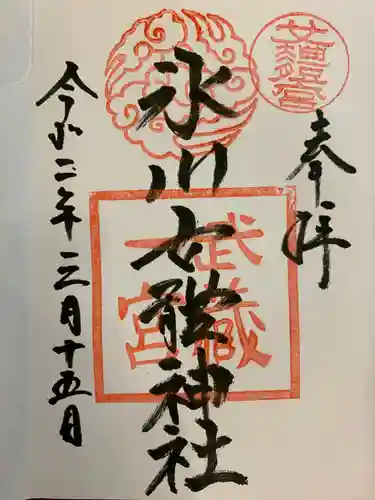 奉拝
武蔵
一宮
氷川女體神社
令和二年三月十五日